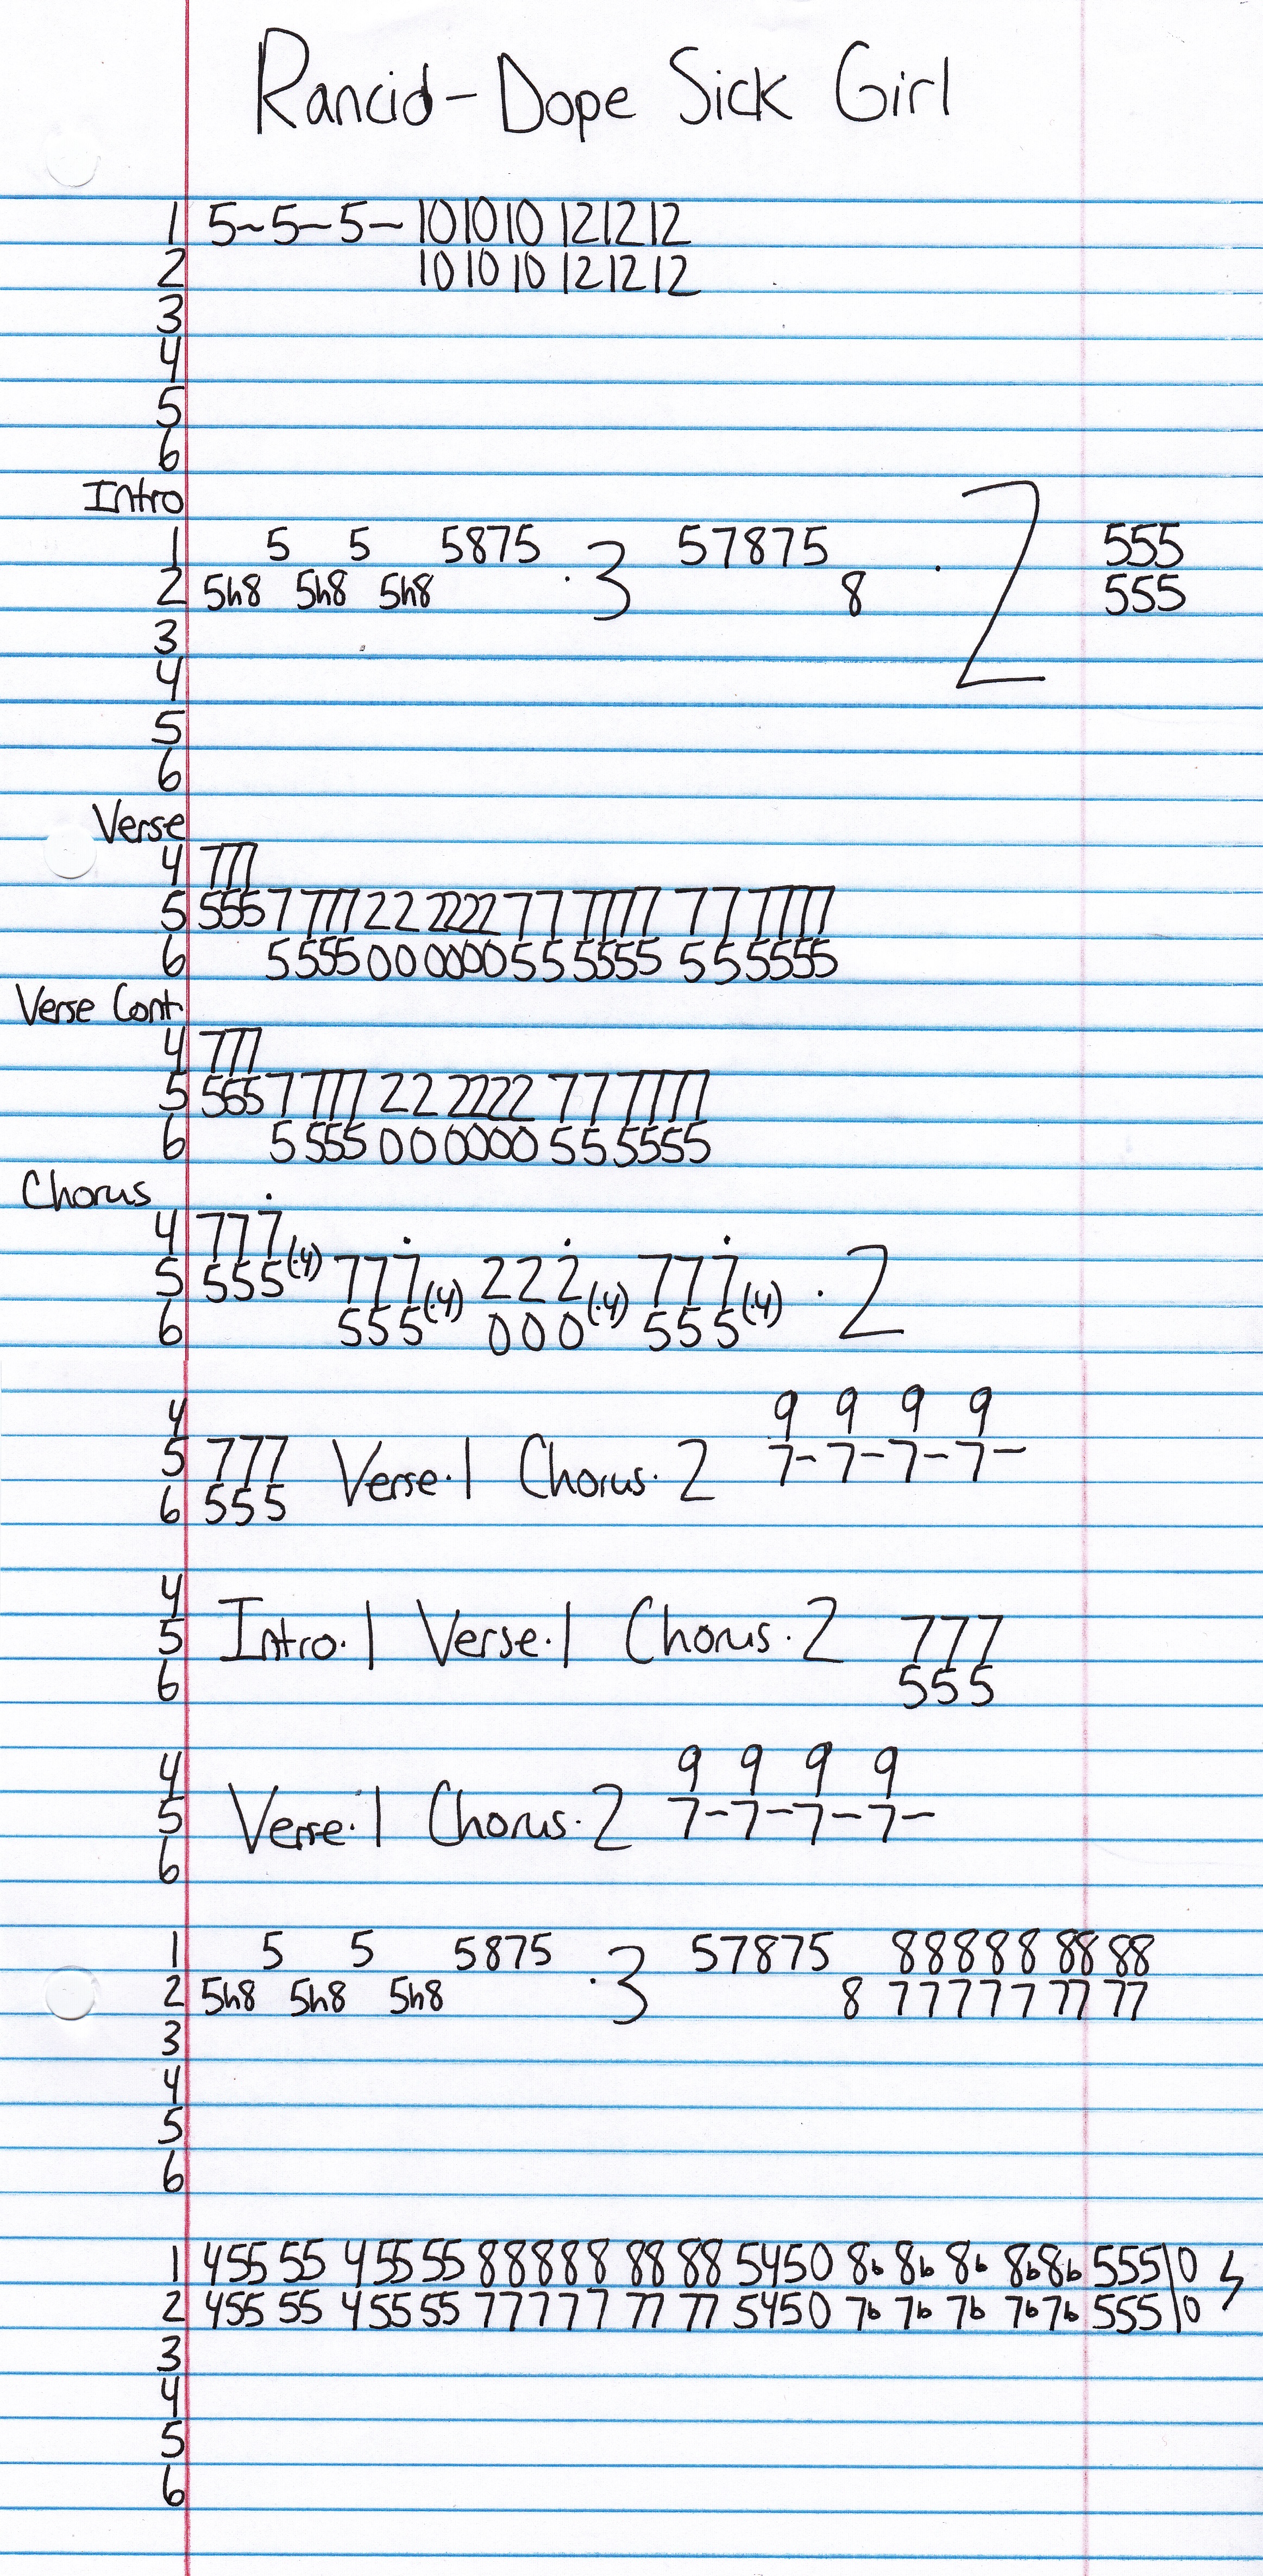 Rancid-Dope Sick Girl
1 5~5-5- 101010 121212
2 101010 121212
3
4
5
6
Intro
1 5 5 5875 .3 57875 . 2 555
2 5h8 5h8 5h8 8 555
3
4
5
6
Verse
4 777
5 5557 777 22 2222 77 7777 77 7777
6 5 555 00 0000 55 5555 55 5555
Verse Cont.
4 777
5 5557 777 22 2222 77 7777
6 5 555 00 0000 55 5555
Chorus
4 777
5 555(.4) 777(.4) 222(.4) 777(.4) .2
6 555 000 555
4 9 9 9 9
5 777 Verse.1 Chorus.2 7-7-7-7-
6 555
4
5 Intro.1 Verse.1 Chorus.2 777
6 555
4 9 9 9 9
5 Verse.1 Chorus.2 7-7-7-7-
6
1 5 5 5875 .3 57875 88888 88 88
2 5h8 5h8 5h8 8 77777 77 77
3
4
5
6
1 455 55 455 55 88888 88 88 5450 8b 8b 8b 8b8b 555\0
2 455 55 455 55 77777 77 77 5450 7b 7b 7b 7b7b 555\0
3
4
5
6